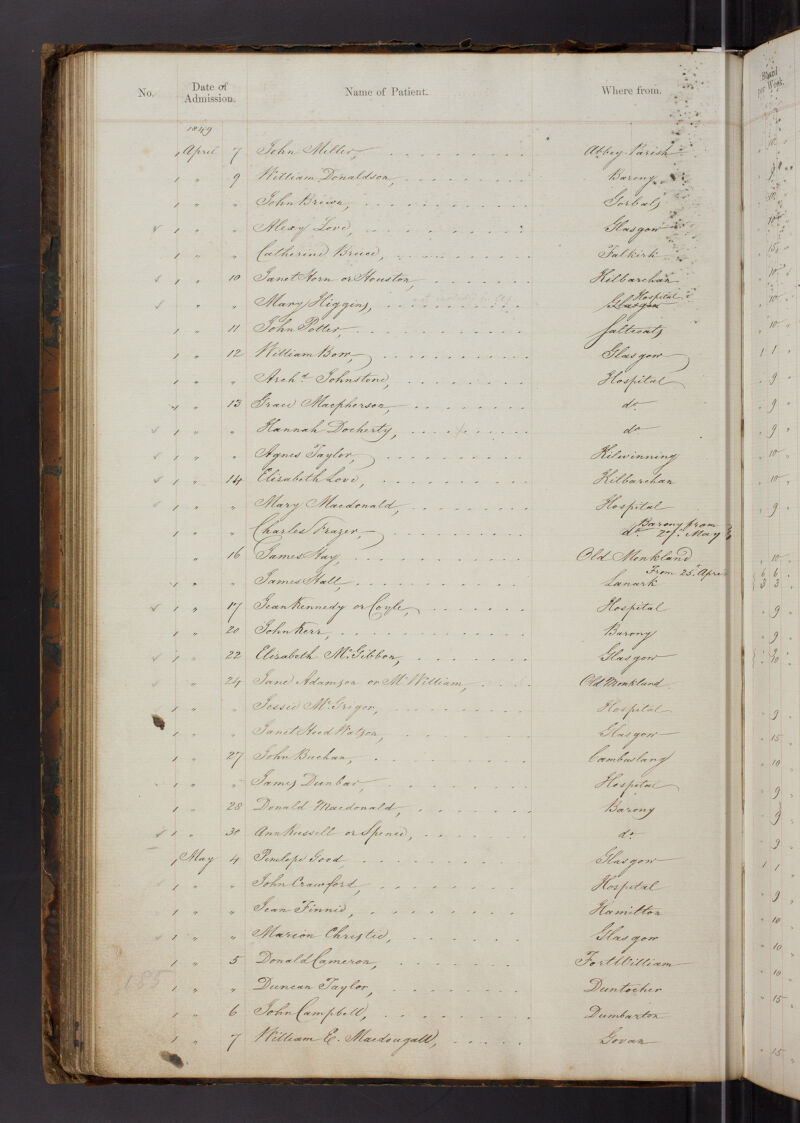 No. Date of Admission. Name of Patient. Where from. Board per Week.
1849
April 7 John Miller, Abbey Parish 10
" 9 William Donaldson, Barony 9
" " John Brown, Gorbals 10
" " Alexr Love, Glasgow 10
" " Catherine Bruce, Falkirk 15
" 10 Janet Horn or Houston, Kilbarchan 10
" " Mary Higgins, Glasgow Hospital 10
" 11 John Potter, Saltcoats 10
" 12 William Bow, Glasgow 1 1
" " Archd Johnstone, Hospital 9
" 13 Grace Macpherson, do 9
" " Hannah Docherty, do 9
" " Agnes Taylor, Kilwinning 10
" 14 Elizabeth Love, Kilbarchan 10
" " Mary Macdonald, Hospital 9
" " Charles Frazer, do Barony from May
" 16 James Hay, Old Monkland 10
" " James Hall, Lanark From 25 April
" 17 Jean Kennedy or Coyle, Hospital 9
" 20 John Kerr, Barony 9
" 22 Elizabeth McGibbon, Glasgow
" 24 Jane Adamson or McWilliam, Old Monkland
" " Jessie McGrigor, Hospital 9
" " Janet Hood Watson, Glasgow 15
" 27 John Buchan, Cambuslang 10
" " James Dunbar, Hospital 9
" 28 Donald Macdonald, Barony 9
" 30 Ann Russell or Spence, do 9
May 4 Penelope Good, Glasgow 1 1
" " John Crawford, Hospital 9
" " Jean Finnie, Hamilton 10
" " Marion Christie, Glasgow 10
" 5 Donald Cameron, Fort William 10
" " Duncan Taylor, Duntocher
" 6 John Campbell, Dumbarton 15
" 7 William E. Macdougall, Govan 15
185